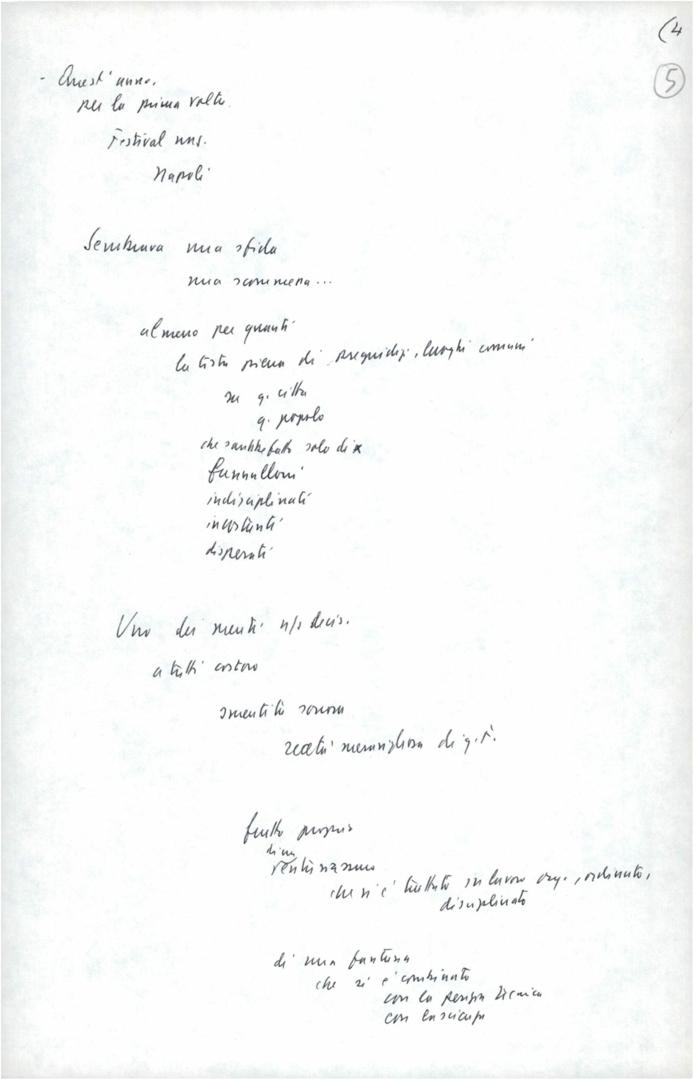 (4
5
- Quest'anno,
per la prima volta
Festival naz.
Napoli
Sembrava una sfida
una scommessa...
almeno per quanti
la testa piena di pregiudizi, luoghi comuni
su q. città
q. popolo
che sarebbe fatto solo di
fannulloni
indisciplinati
incostanti
disperati
Uno dei meriti n/s decis.
a tutti costoro
smentita sonora
realtà meravigliosa di q. F.
frutto proprio
di un
entusiasmo
che si è tradotto in lavoro org., ordinato,
disciplinato
di una fantasia
che si è combinata
con la perizia tecnica
con la